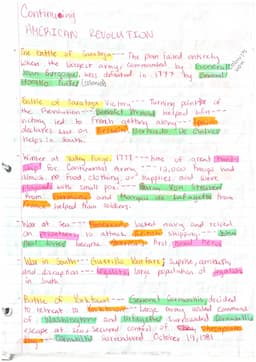 Continuing
AMERICAN REVOLUTION
The battle of Saratoga -- The plan failed entirely
when the largest army, commanded by General
John Burgoyne, was defeated in 1777 by General
Horatio Gates
Battle of Saratoga Victory -- Turning point of
the Revolution -- Benedict Arnold helped win --
victory led to French entering army -- Spain
declares war on British Bernardo De Galvez
helps in South.
Winter at Valley Forge, 1777 -- time of great hard
ship for Continental Army -- 12,000 troops had
no food, clothing, supplies and were
plagued with small pox. Baron Von Steuben
from Germany and Marquis de Lafayette from
France helped train soldiers.
War at Sea -- lacked navy and relied
on privateers to attack British shipping -- John
Paul Jones became first naval hero
War in South -- Guerrilla Warfare; surprise, ambush,
and disruption -- Loyalists large population of loyalists
in South
Battle of Yorktown -- General Cornwallis decided
to retreat to Yorktown large army added command
of Washington and Lafayette surrounded Cornwallis
escape at sea secured control of Chesapeake
Cornwallis surrendered October 19, 1781